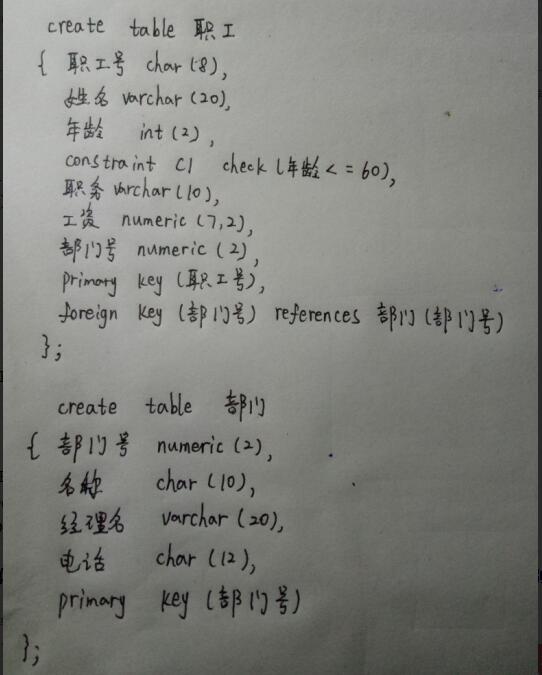 create table 职工
{ 职工号 char(8),
姓名 varchar(20),
年龄 int(2),
constraint C1 check(年龄<=60),
职务 varchar(10),
工资 numeric(7,2),
部门号 numeric(2),
primary key(职工号),
foreign key(部门号) references 部门(部门号)
};
create table 部门
{ 部门号 numeric(2),
名称 char(10),
经理名 varchar(20),
电话 char(12),
primary key(部门号)
};